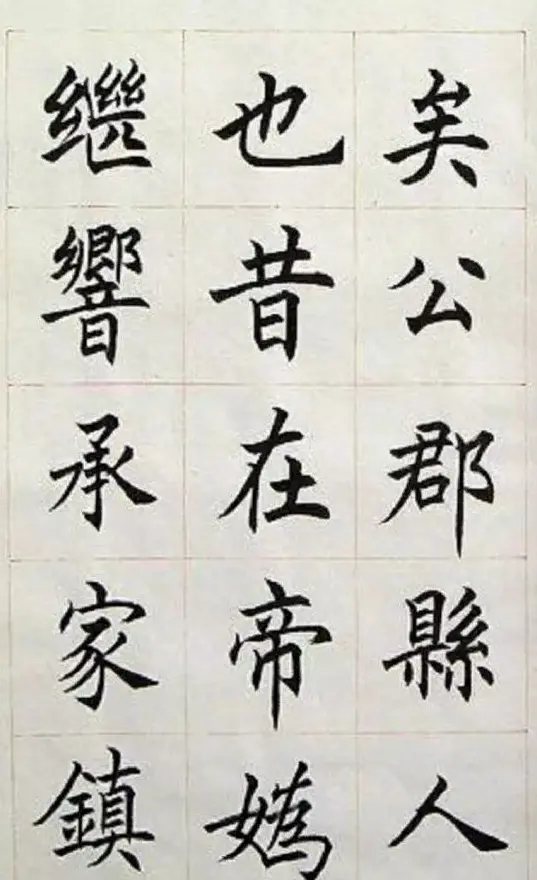 矣公郡縣人
也昔在帝媯
繼響承家鎮